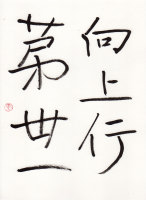 向上行
第廿一